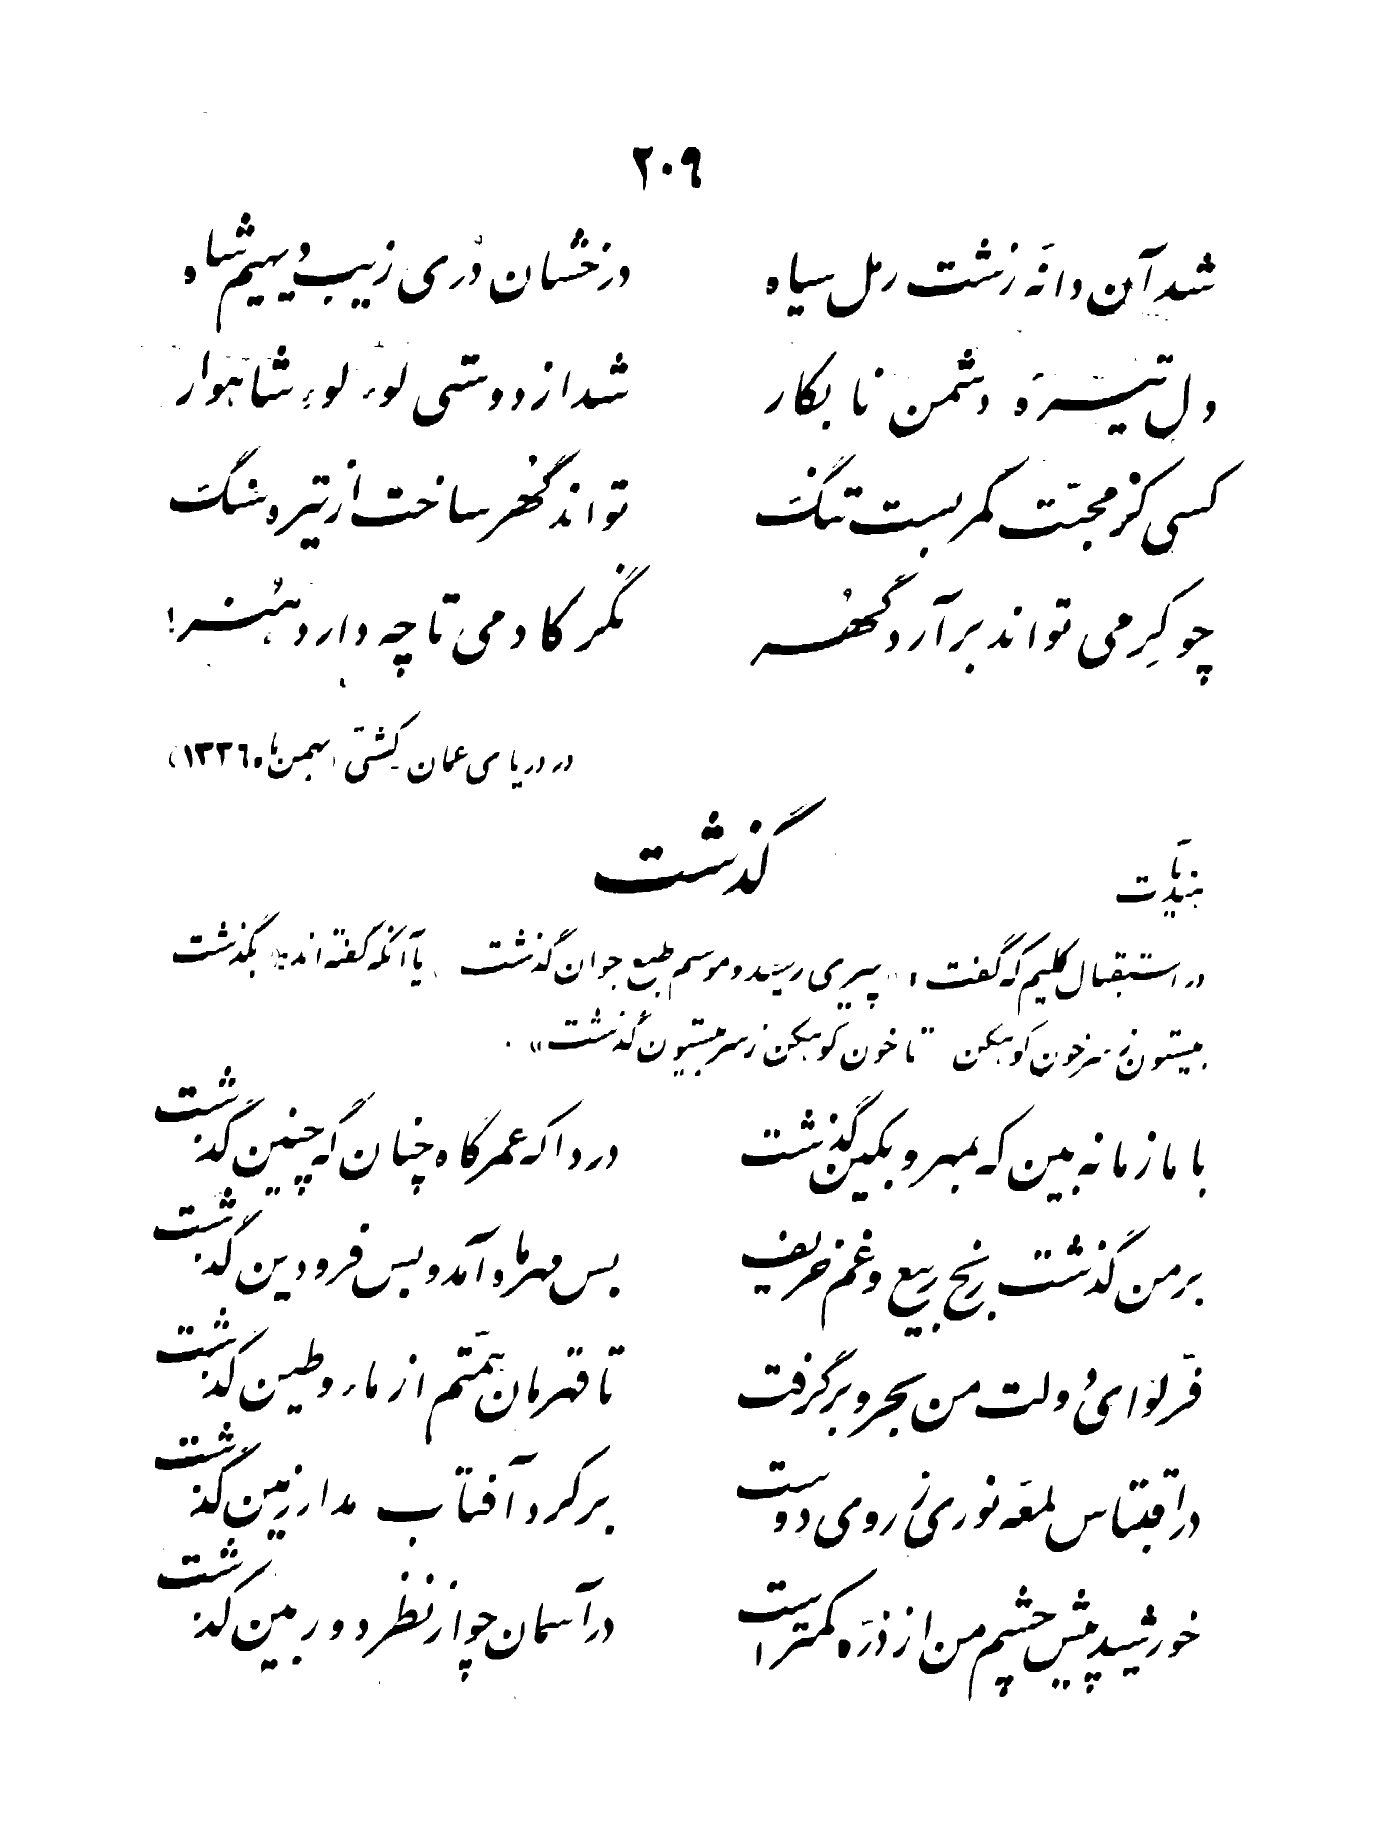 ۲۰۹
شد آن دانهٔ زشت رمل سیاه    درخشان دُری زیب دیهیم شاه
دل تیرهٔ دشمن نابکار    شد از دوستی لوءلوءِ شاهوار
کسی کز محبّت کمر بست تنگ    تواند گهُر ساخت از تیره سنگ
چو کِرمی تواند برآرد گهُر    نگر کادمی تا چه دارد هُنر!
در دریای عمان کشتی (بهمن ماه ۱۳۳۶)
گذشت
در استقبال کلیم که گفت: «پیری رسید و موسم طبع جوان گذشت
یا آنکه گفته اند: بگذشت
بیستون ز سر خون کوهکن    تا خون کوهکن ز سر بیستون گذشت».
با ما زمانه بین که بمهر و بکین گذشت    دردا که عمر گاه چنان گه چنین گذشت
بر من گذشت رنج ربیع و غم خریف    بس مهرماه آمد و بس فرودین گذشت
فرّ لوای دولت من بحر و بر گرفت    تا قهرمان همّتم از ماء و طین گذشت
در اقتباس لمعهٔ نوری ز روی دوست    بر گرد آفتاب مدار زمین گذشت
خورشید پیش چشم من از ذرّه کمتر است    در آسمان چو از نظر دوربین گذشت